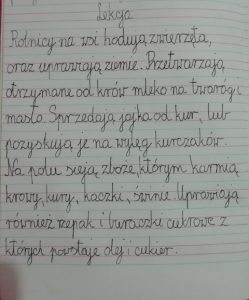 Lekcja
Rolnicy na wsi hodują zwierzęta,
oraz uprawiają ziemie. Przetwarzają
otrzymane od krów mleko na twarogi
masło. Sprzedają jajka od kur, lub
pozyskują je na wyląg kurczaków.
Na polu sieją zboże, którym karmią
krowy, kury, kaczki, świnie. Uprawiają
również rzepak i buraczki cukrowe z
których powstaje olej i cukier.